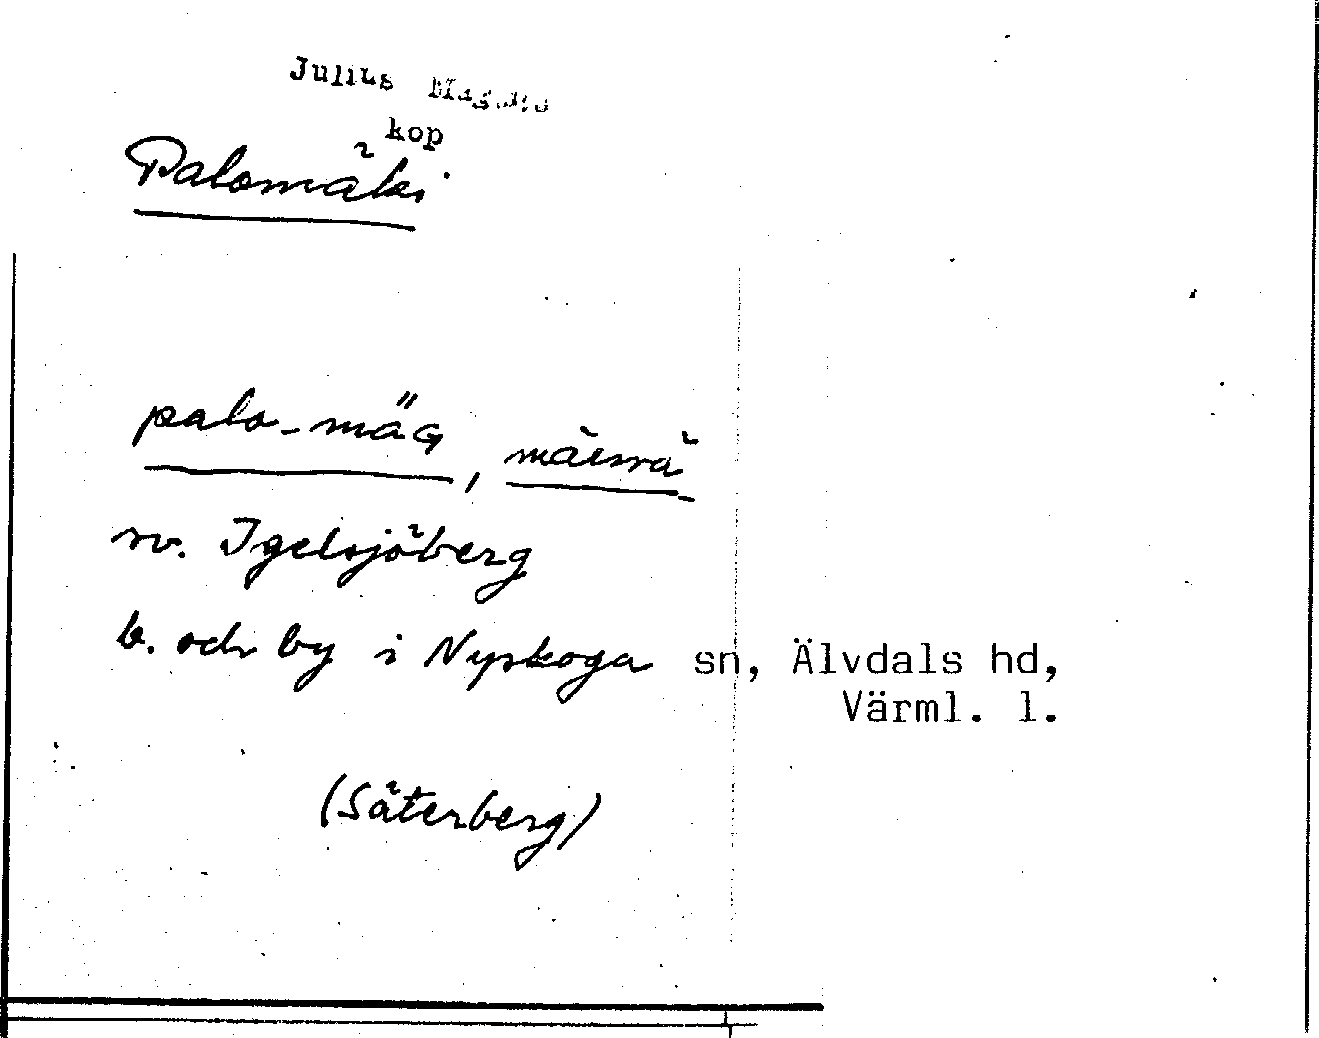 Julius Magiste
kop
Palomäki
palo-mäG, mäɛvä
sv. Igelsjöberg
b. och by i Nyskoga sn, Älvdals hd,
Värml. l.
(Säterberg)